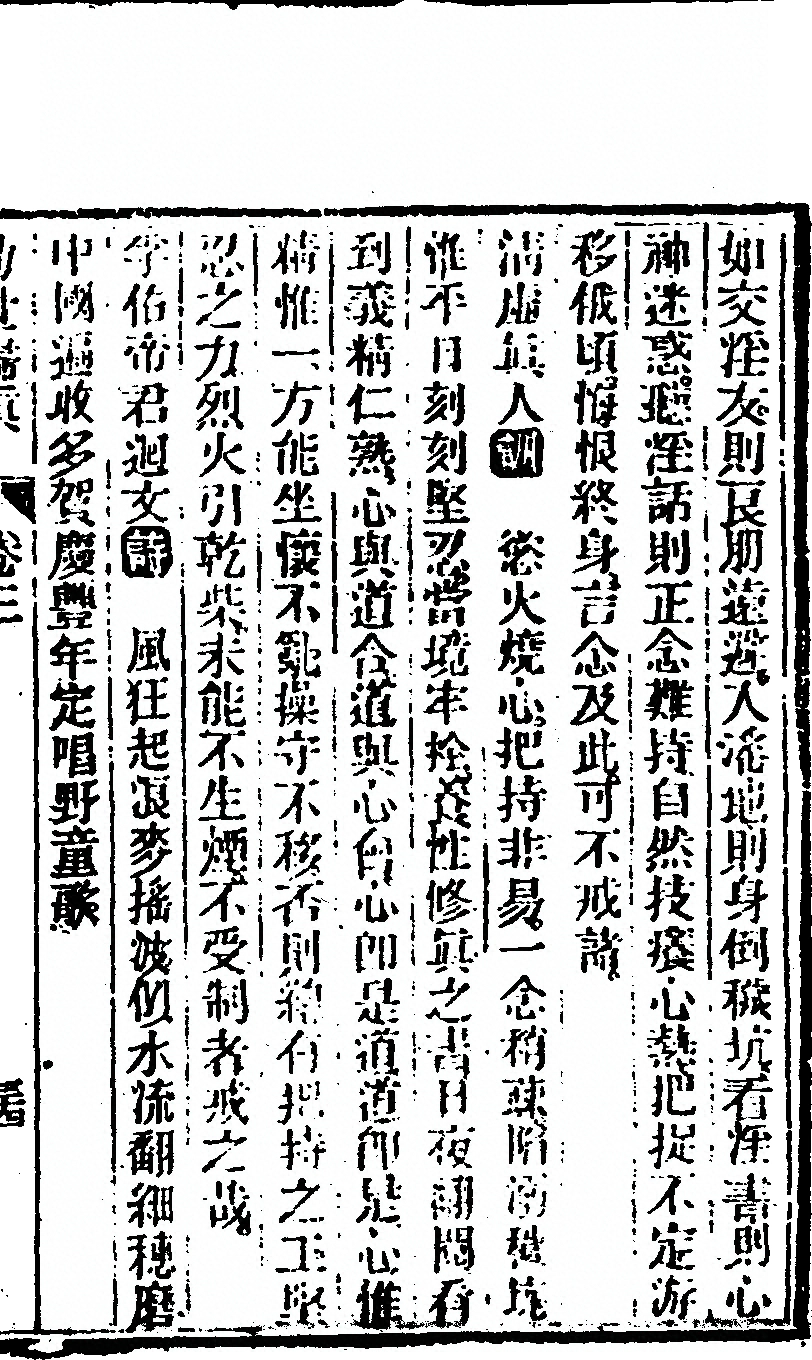 如交淫友則良朋遠遊人淫地則身倒穢坑看淫書則心
神迷惑聽淫話則正念難持自然技癢心熱把捉不定游
移俄頃悔恨終身言念及此可不戒諸
清虛眞人訓 慾火燒心把持非易一念稍疎陷溺穢坑
惟平日刻刻堅忍當境牢拴養性修眞之書日夜翻閱看
到義精仁熟心與道合道與心會心卽是道道卽是心惟
精惟一方能坐懷不亂操守不移否則縱有把持之工堅
忍之力烈火引乾柴未能不生煙不受制者戒之哉
孚佑帝君迴文詩 風狂起浪麥搖波似水流翻細穗磨
中國遍收多賀慶豐年定唱野童歌
卷三